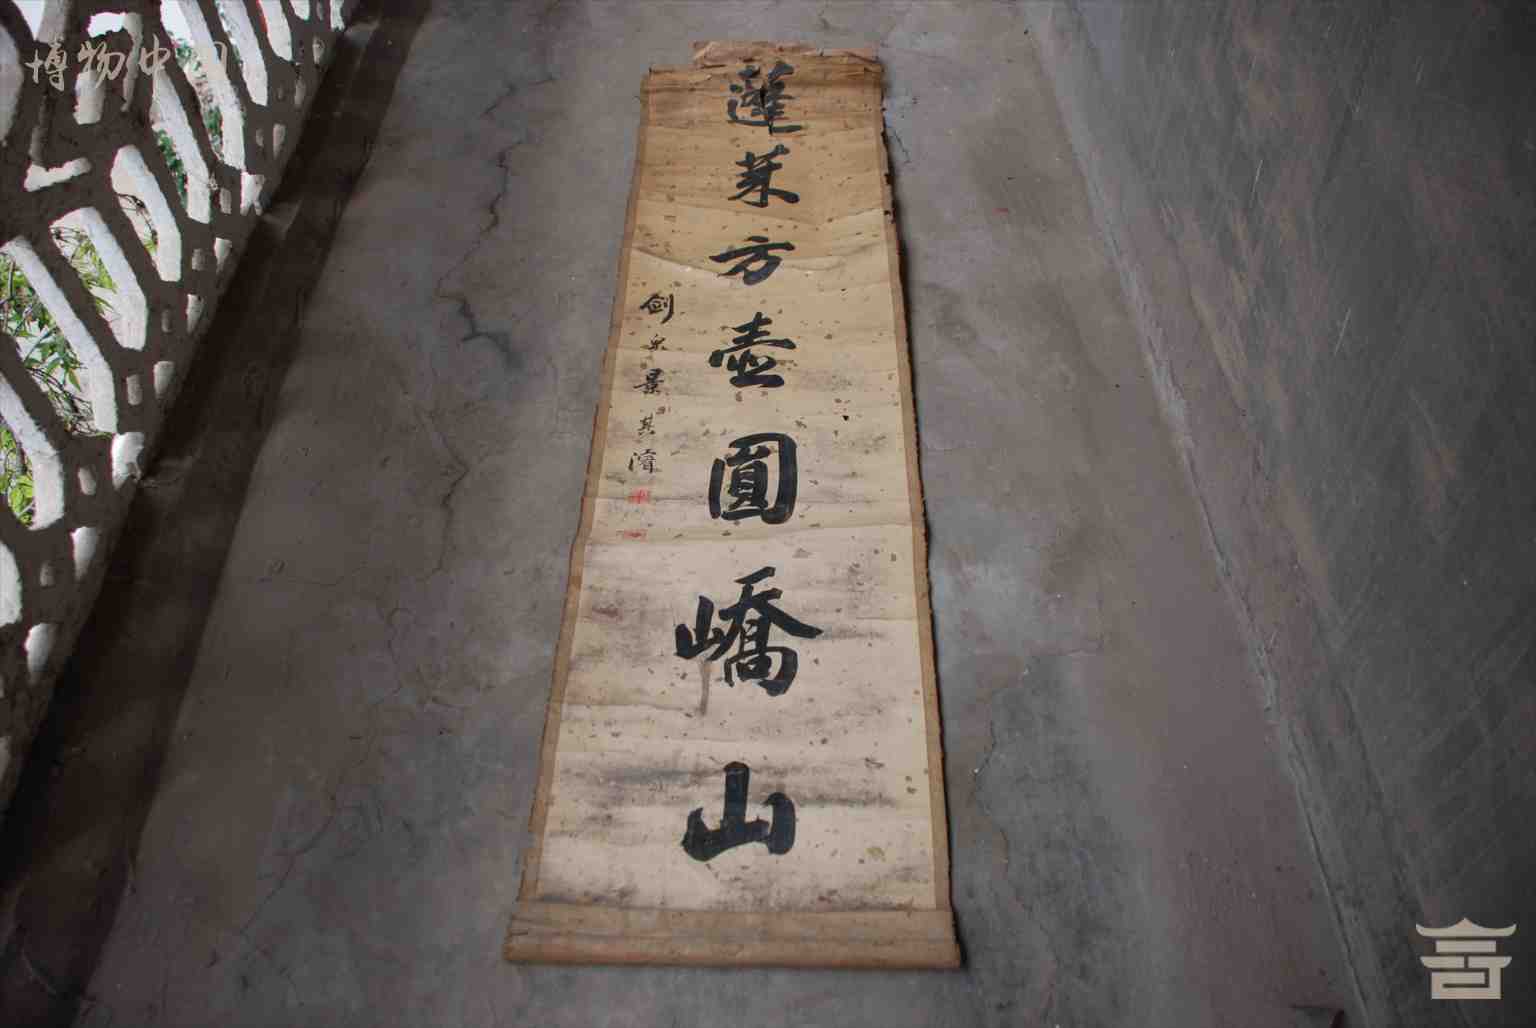 博物中国
蓬莱方壺圓嶠山
劍泉景其濬